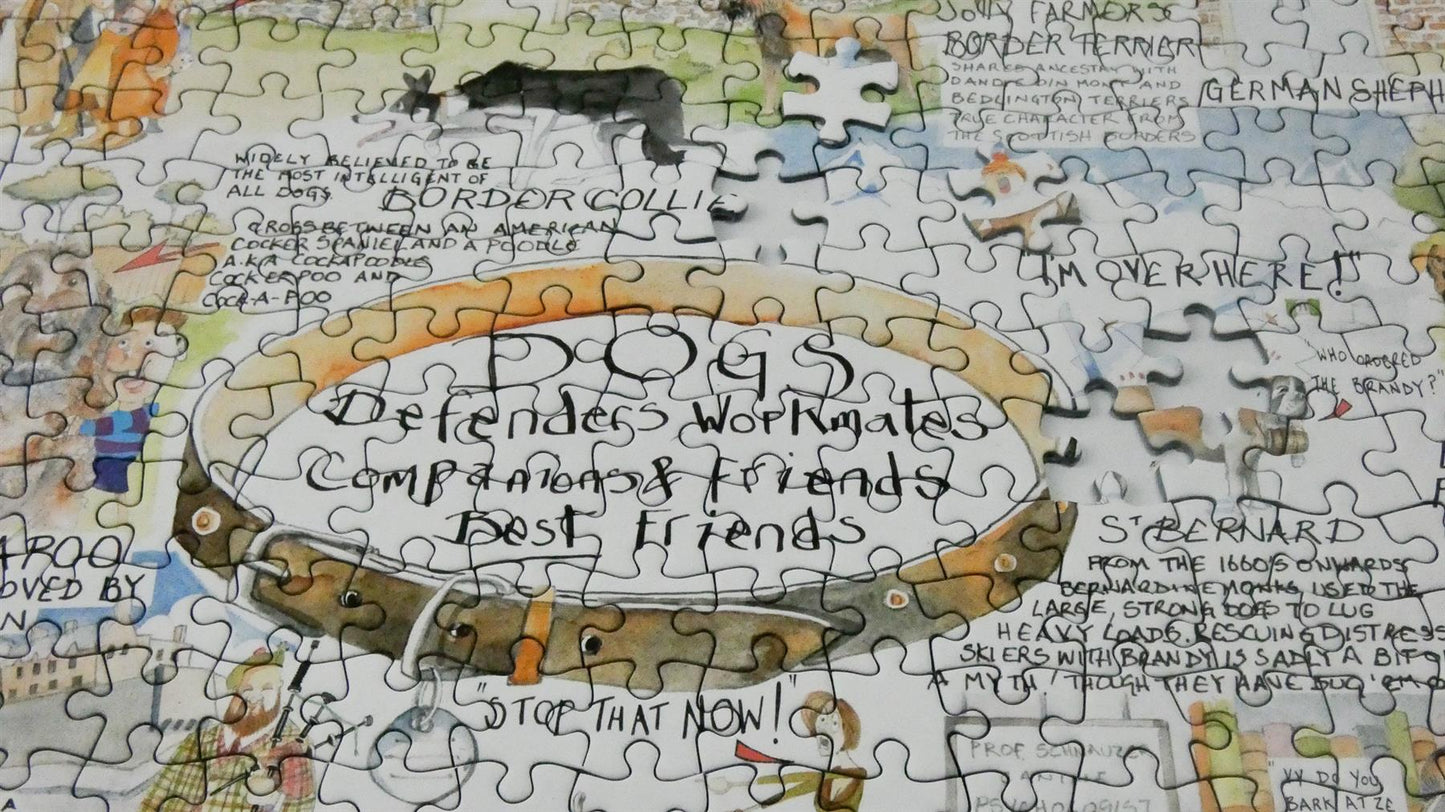 JOLLY FARMERS
BORDER TERRIER
SHARES ANCESTRY WITH
DANDIE DINMONT AND
BEDLINGTON TERRIERS
TRUE CHARACTER FROM
THE SCOTTISH BORDERS
GERMAN SHEPH
WIDELY BELIEVED TO BE
THE MOST INTELLIGENT OF
ALL DOGS
BORDER COLLIE
CROSS BETWEEN AN AMERICAN
COCKER SPANIEL AND A POODLE
A.K.A COCKAPOODLE
COCKERPOO AND
COCK-A-POO
"I'M OVER HERE!"
"WHO ORDERED
THE BRANDY?"
DOGS
Defenders Workmates
Companions & Friends
Best Friends
APOO
OVED BY
N
ST BERNARD
FROM THE 1660'S ONWARDS
BERNARDINE MONKS USED THE
LARGE, STRONG DOGS TO LUG
HEAVY LOADS. RESCUING DISTRESS
SKIERS WITH BRANDY IS SADLY A BIT O
A MYTH! THOUGH THEY HAVE DUG 'EM O
"STOP THAT NOW!"
PROF. SCHNAUZER
PSYCHOLOGIST
"VY DO YOU
BARK AT ZE
A